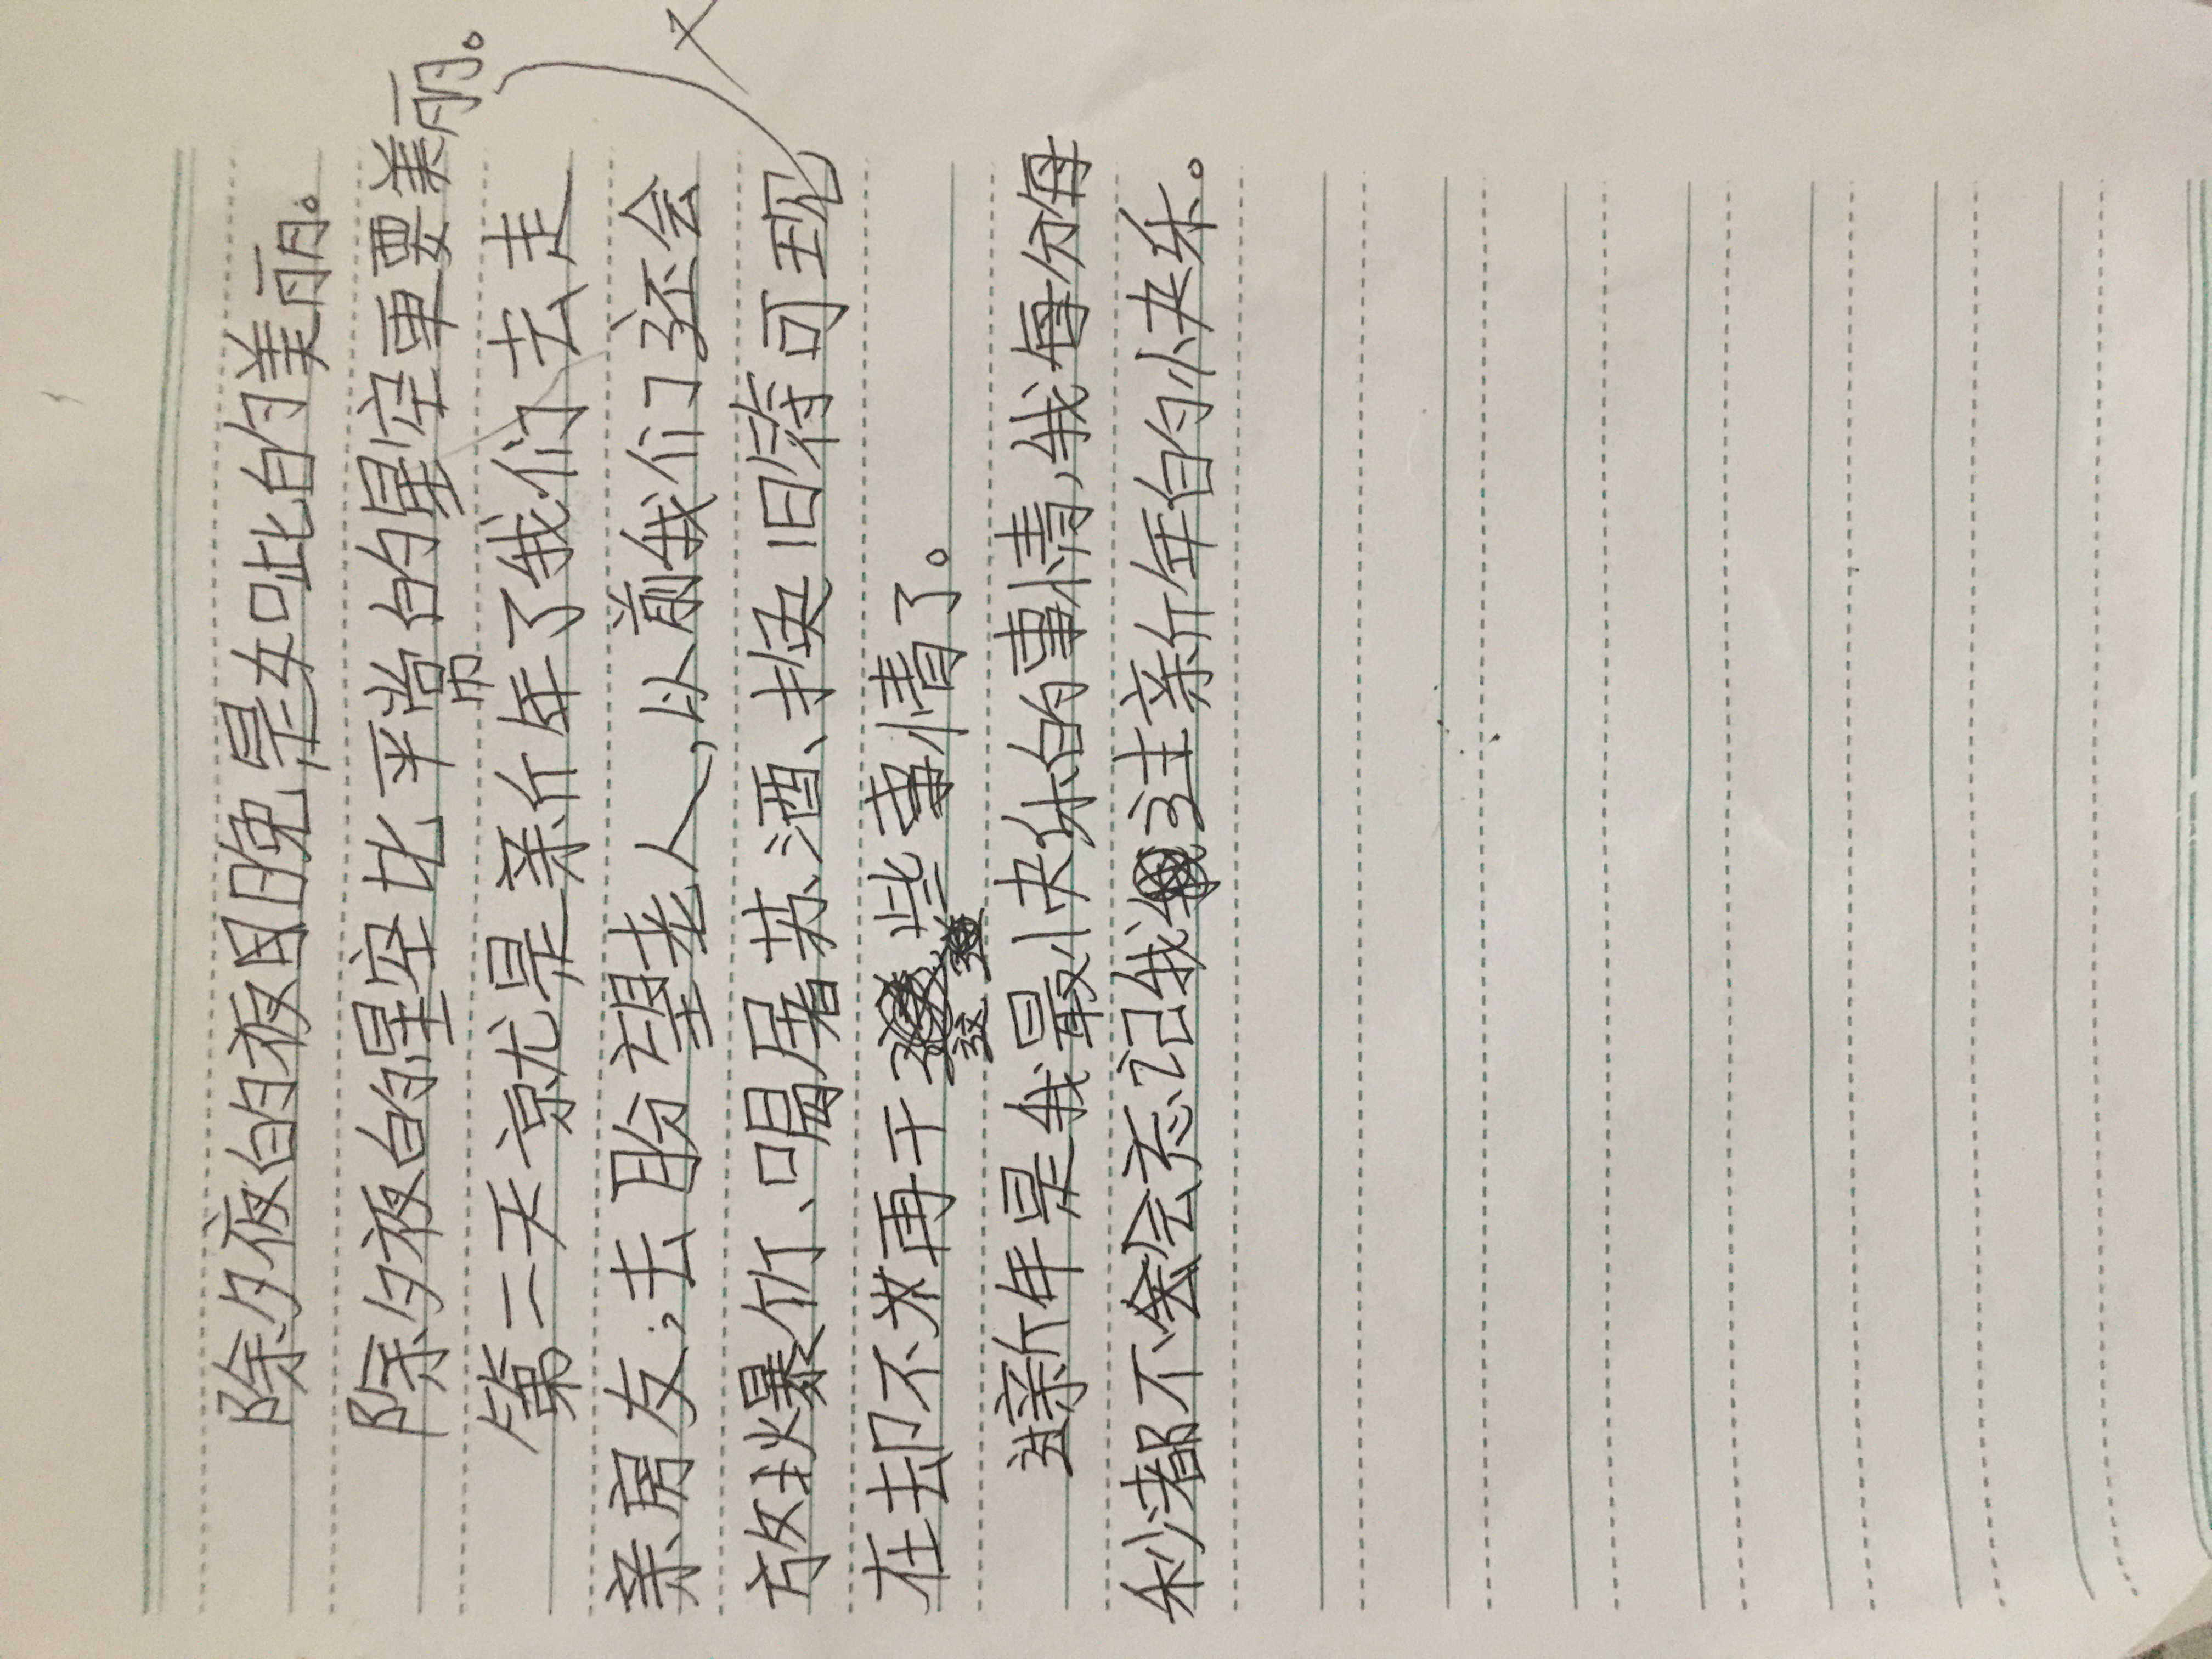 除夕夜的夜因晚是如此的美丽。
除夕夜的星空比平常的星空更要美丽。
第二天就是亲斤年了我们去走
亲房友,去盼望老人,以前我们还会
放爆竹、喝屠苏酒、换旧符可现
在却不再干这些事情了。
这新年是我最快乐的事情,我每分每
秒都不会忘记我这新年的快乐。